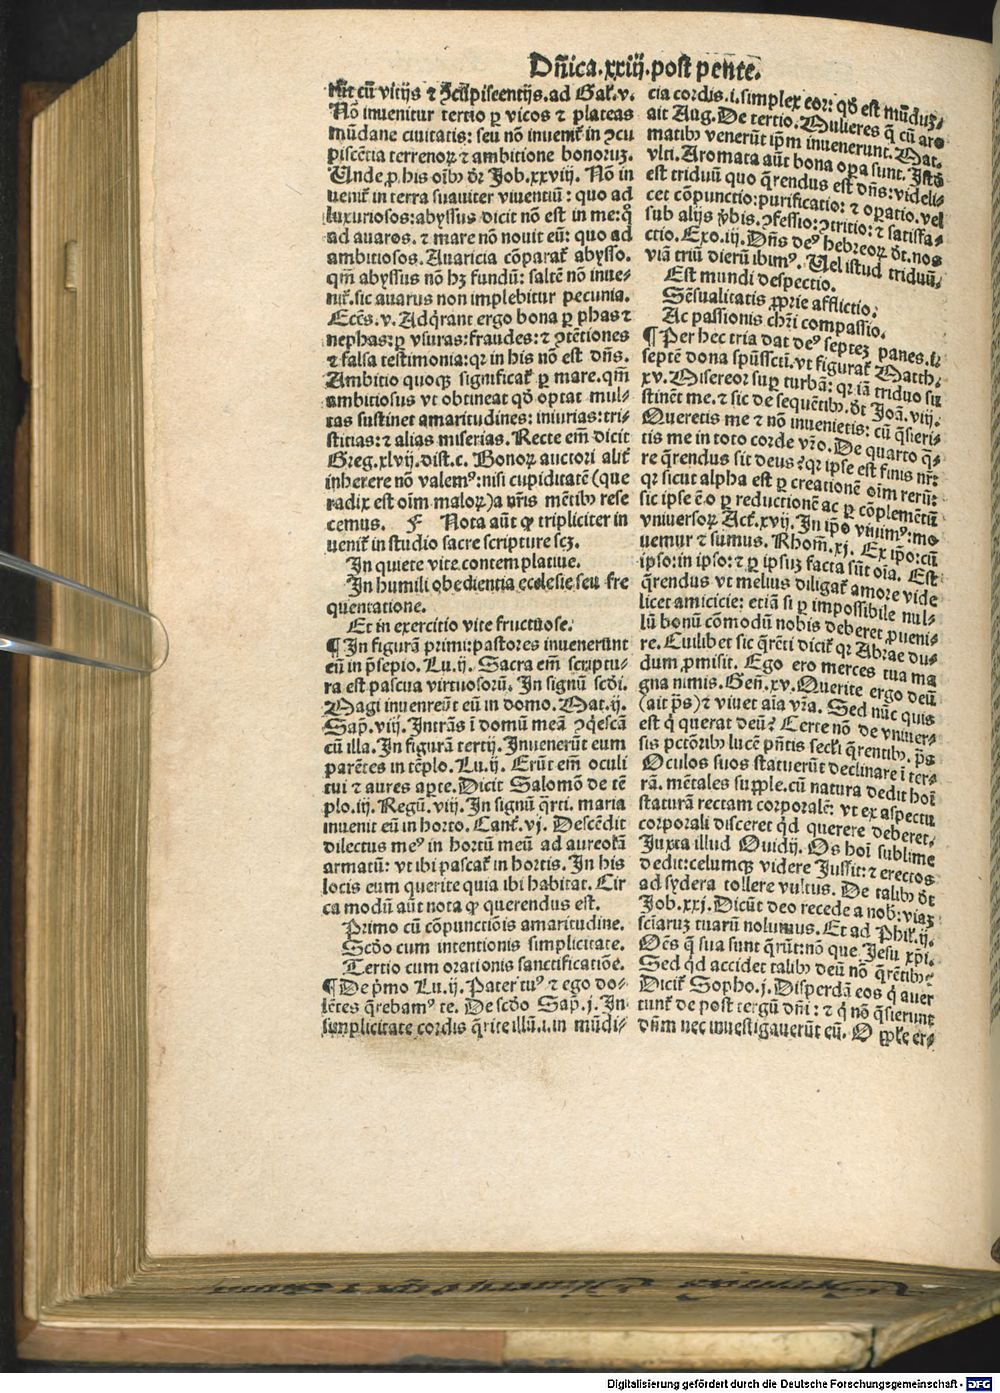 Dñica.xxiij.post pente.
rũt cũ vitijs ⁊ ꝯcupiscentijs.ad Gal̃.v.
Nõ invenitur tertio ꝑ vicos ⁊ plateas
mũdane civitatis: seu nõ invenit̃ in ꝯcu
piscẽtia terrenoꝝ ⁊ ambitione bonoruꝫ.
Unde ꝓ his oĩbꝰ dr̃ Job.xxviij. Nõ in
venit̃ in terra suaviter viventiũ: quo ad
luxuriosos: abyssus dicit nõ est in me: q̃
ad avaros. ⁊ mare nõ novit eũ: quo ad
ambitiosos. Avaricia cõparat̃ abysso.
qm̃ abyssus nõ hꝫ fundũ: saltẽ nõ inve⸗
nit̃. sic avarus non implebitur pecunia.
Ecc̃s.v. Adq̃rant ergo bona ꝑ phas ⁊
nephas: ꝑ vsuras: fraudes: ⁊ ꝯtẽtiones
⁊ falsa testimonia: qꝛ in his nõ est dñs.
Ambitio quoqꝫ significat̃ ꝑ mare. qm̃
ambitiosus vt obtineat qđ optat mul⸗
tas sustinet amaritudines: iniurias: tri⸗
stitias: ⁊ alias miserias. Recte em̃ dicit
Greg.xlvij.dist.c. Bonoꝝ auctori alit̃
inherere nõ valemꝰ: nisi cupiditatẽ (que
radix est oĩm maloꝝ) a nr̃is mẽtibꝰ rese
cemus. F Nota aũt ꝙ tripliciter in
venit̃ in studio sacre scripture scꝫ.
In quiete vite contemplative.
In humili obedientia ecclesie seu fre
quentatione.
Et in exercitio vite fructuose.
¶ In figurã primi: pastores invenerunt
eũ in p̃sepio. Lu.ij. Sacra em̃ scriptu⸗
ra est pascua virtuosorũ. In signũ scđi.
Magi invenerũt eũ in domo. Mat.ij.
Sap̃.viij. Intrãs ĩ domũ meã ꝯq̃escã
cũ illa. In figurã tertij. Invenerũt eum
parẽtes in tẽplo. Lu.ij. Erũt em̃ oculi
tui ⁊ aures aꝑte. Dicit Salomõ de tẽ
plo.iij. Regũ.viij. In signũ q̃rti. maria
invenit eũ in horto. Cant̃.vj. Descẽdit
dilectus meꝰ in hortũ meũ ad aureolã
armatũ: vt ibi pascat̃ in hortis. In his
locis eum querite quia ibi habitat. Cir
ca modũ aũt nota ꝙ querendus est.
Primo cũ cõpunctiõis amaritudine.
Scđo cum intentionis simplicitate.
Tertio cum orationis sanctificatiõe.
¶ De p̃mo Lu.ij. Pater tuꝰ ⁊ ego do⸗
lẽtes q̃rebamꝰ te. De scđo Sap̃.j. In
simplicitate cordis q̃rite illũ.i.in mũdi⸗
cia cordis.i.simplex cor: qđ est mũduꝫ.
ait Aug. De tertio. Mulieres q̃ cũ aro
matibꝰ venerũt ip̃m invenerunt. Mat.
vlti. Aromata aũt bona oꝑa sunt. Istđ
est triduũ quo q̃rendus est dñs: videli⸗
cet cõpunctio: purificatio: ⁊ oꝑatio. vel
sub alijs v̾bis. ꝯfessio: ꝯtritio: ⁊ satisfa⸗
ctio. Exo.iij. Dñs deꝰ hebreoꝝ dt̃. nos
viã triũ dierũ ibimꝰ. Uel istud triduũ.
Est mundi despectio.
Sẽsualitatis ꝓprie afflictio.
Ac passionis chr̃i compassio.
¶ Per hec tria dat deꝰ septeꝫ panes.i.
septẽ dona spũssctĩ. vt figurat̃ Matth.
xv. Misereor suꝑ turbã: qꝛ iã triduo su
stinẽt me. ⁊ sic de sequẽtibꝰ. dt̃ Joã.viij.
Queretis me ⁊ nõ invenietis: cũ q̃sieri⸗
tis me in toto corde vr̃o. De quarto q̃⸗
re q̃rendus sit deus? qꝛ ipse est finis nr̃:
qꝛ sicut alpha est ꝑ creationẽ oĩm rerũ:
sic ipse ẽ o ꝑ reductionẽ ac ꝑ cõplemẽtũ
vniversoꝝ Act̃.xvij. In ip̃o vivimꝰ: mo
vemur ⁊ sumus. Rhom̃.xj. Ex ip̃o: cũ
ipso: in ipso: ⁊ ꝑ ipsuꝫ facta sũt oĩa. Est
q̃rendus vt melius diligat̃ amore vide
licet amicicie: etiã si ꝑ impossibile nul⸗
lũ bonũ cõmodũ nobis deberet ꝓveni⸗
re. Cuilibet sic q̃rẽti dicit̃ qꝛ Abrae du⸗
dum ꝓmisit. Ego ero merces tua ma
gna nimis. Geñ.xv. Querite ergo deũ
(ait p̃s) ⁊ vivet aĩa vr̃a. Sed nũc quis
est q̃ querat deũ? Certe nõ de vniver⸗
sis pctõribꝰ lucẽ pñtis secl̃i q̃rentibꝰ. p̃s
Oculos suos statuerũt declinare ĩ ter⸗
rã. mẽtales supple. cũ natura dedit hoĩ
staturã rectam corporalẽ: vt ex aspectu
corporali disceret qđ querere deberet.
Juxta illud Ouidij. Os hoĩ sublime
dedit: celumqꝫ videre Jussit: ⁊ erectos
ad sydera tollere vultus. De talibꝰ dt̃
Job.xxj. Dicũt deo recede a nob̃: viaꝫ
sciaruꝫ tuarũ nolumus. Et ad Phil̃.ij.
Oẽs q̃ sua sunt q̃rũt: nõ que Jesu xp̃i.
Sed qđ accidet talibꝰ deũ nõ q̃rẽtibꝰ?
Dicit̃ Sopho.j. Disperdã eos q̃ aver
tunt̃ de post tergũ dñi: ⁊ q̃ nõ q̃sierunt
dñm nec investigaverũt eũ. O ꝓpt̃ er⸗
Digitalisierung gefördert durch die Deutsche Forschungsgemeinschaft - DFG